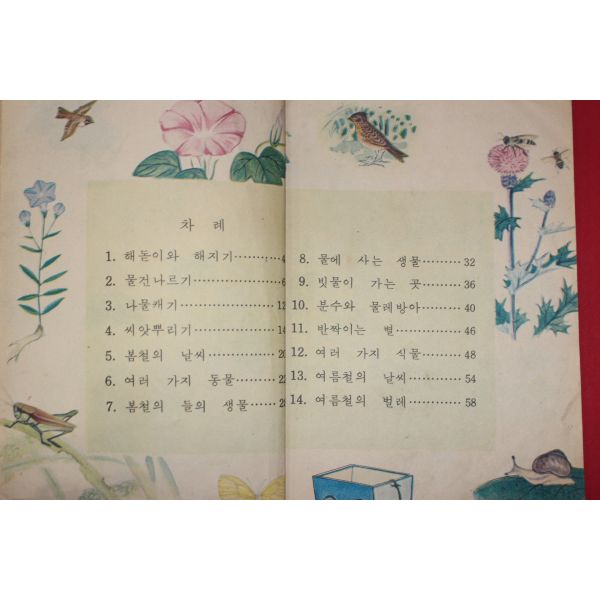 차 례
1. 해돋이와 해지기………4
2. 물건나르기…………6
3. 나물캐기……………12
4. 씨앗뿌리기…………14
5. 봄철의 날씨…………20
6. 여러 가지 동물………22
7. 봄철의 들의 생물……28
8. 물에 사는 생물………32
9. 빗물이 가는 곳………36
10. 분수와 물레방아……40
11. 반짝이는 별…………46
12. 여러 가지 식물………48
13. 여름철의 날씨………54
14. 여름철의 벌레………58